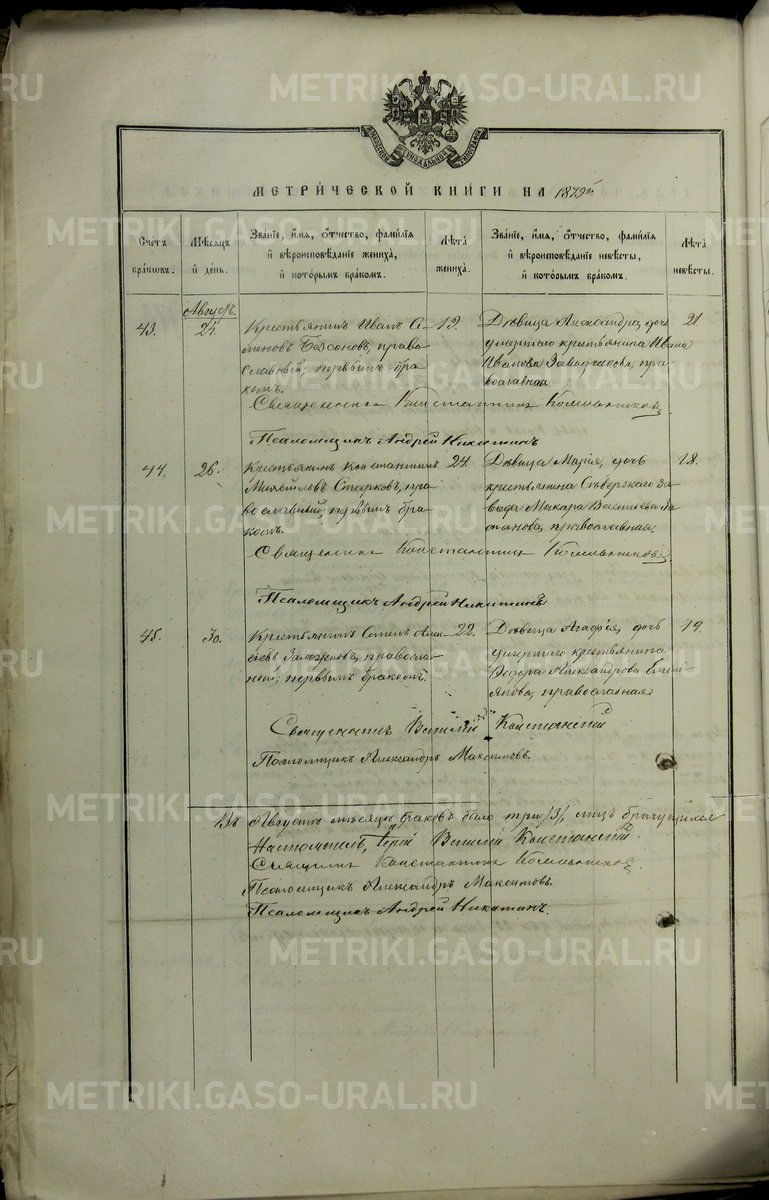 МЕТРИ́ЧЕСКОЙ КНИ́ГИ НА 1879й
Счетъ браковъ.
Мѣсяцъ и день.
Зва́нїе, и́мя, о́тчество, фами́лїя и вѣроисповѣ́данїе жениха̀, и кото́рымъ бра́комъ.
Лѣта̀ жениха̀.
Зва́нїе, и́мя, о́тчество, фами́лїя и вѣроисповѣ́данїе невѣ́сты, и кото́рымъ бра́комъ.
Лѣта̀ невѣ́сты.
Августъ.
43.
Крестьянинъ Иванъ Се-
меновъ право-
славный; первымъ бра-
комъ.
19.
Дѣвица Александра, дочь
умершаго крестьянина Ивана
Иванова пра-
вославная.
21.
Священникъ Константинъ
Псаломщикъ Андрей Никитинъ
44.
26.
Крестьянинъ Константинъ
Михайловъ Старковъ, пра-
вославный; первымъ бра-
комъ.
24.
Дѣвица Марія, дочь
крестьянина Сѣверскаго За-
вода Макара Васильева
православная.
18.
Священникъ Константинъ
Псаломщикъ Андрей Никитинъ
45.
30.
Крестьянинъ
православ-
ный; первымъ бракомъ.
22.
Дѣвица Агафія, дочь
умершаго крестьянина
Ѳедора Александрова
православная
19.
Священникъ Василій
Псаломщикъ Александръ Максимовъ.
Въ Августѣ мѣсяцѣ браковъ было три /3/, лицъ брачущихся
Настоятель, Іерей Василій
Священникъ Константинъ
Псаломщикъ Александръ Максимовъ.
Псаломщикъ Андрей Никитинъ.
METRIKI.GASO-URAL.RU